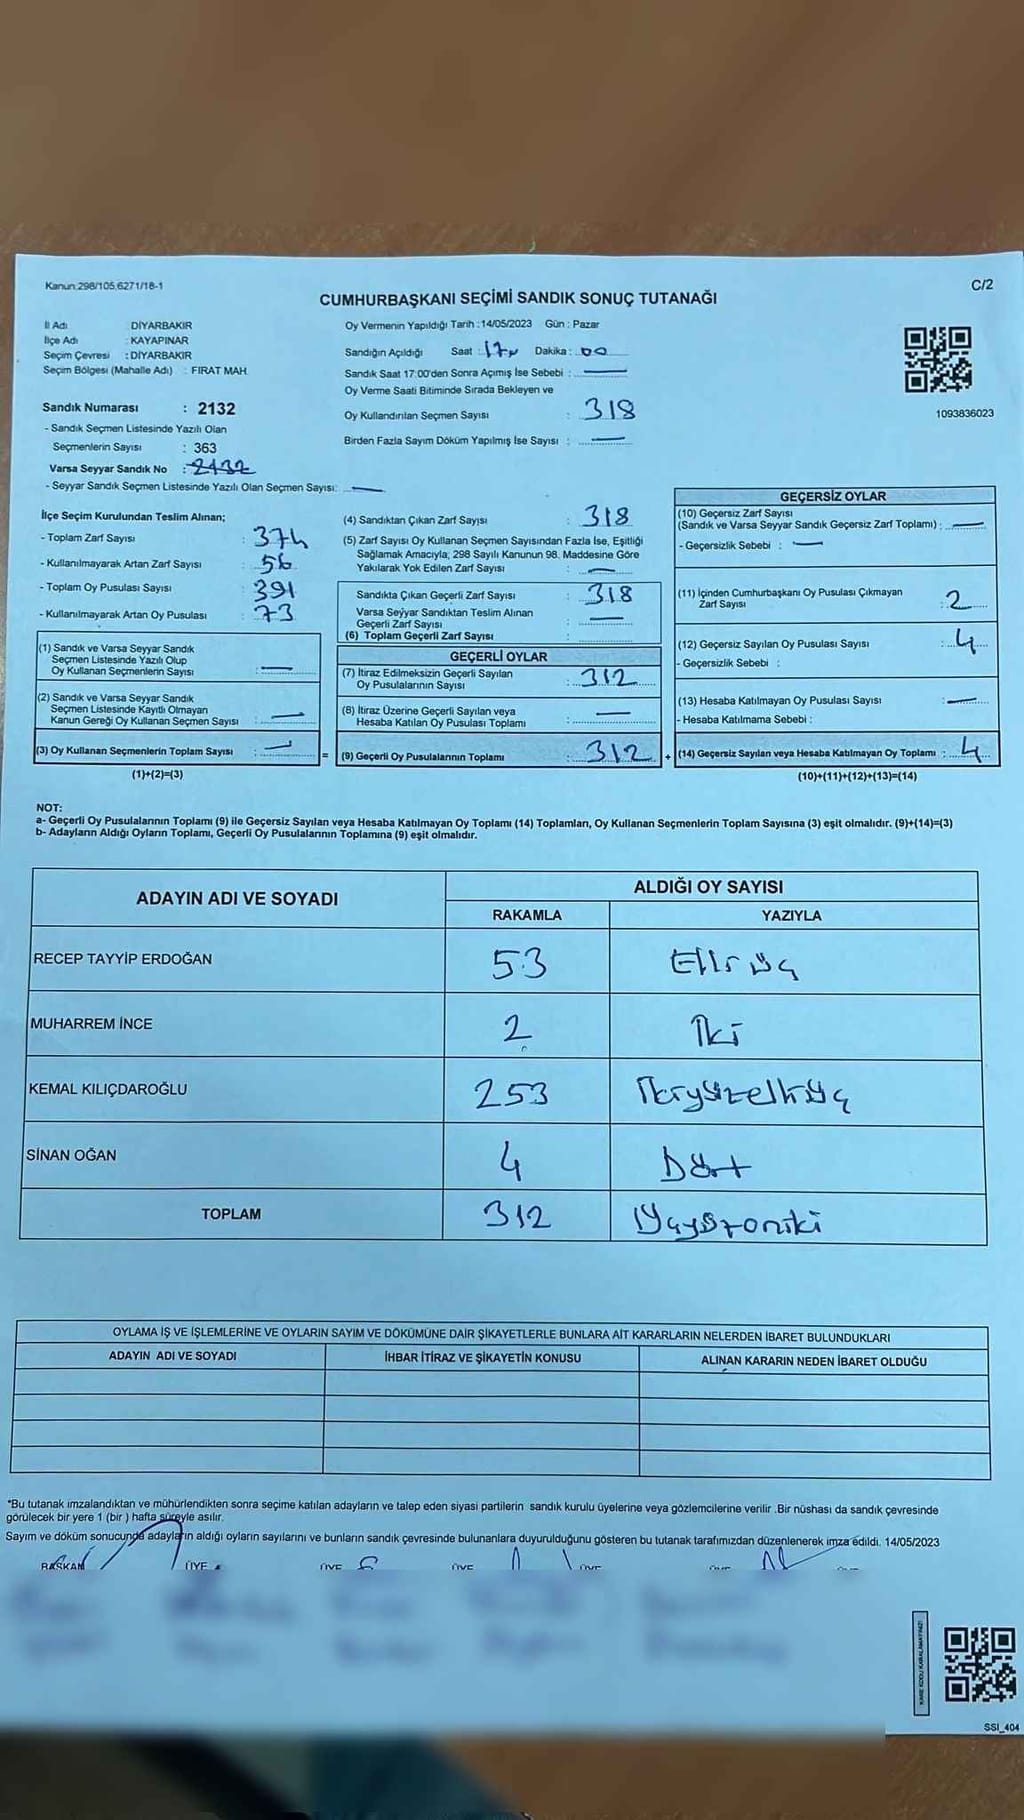 Kanun:298/105,6271/18-1
C/2
CUMHURBAŞKANI SEÇİMİ SANDIK SONUÇ TUTANAĞI
İl Adı : DİYARBAKIR
İlçe Adı : KAYAPINAR
Seçim Çevresi : DİYARBAKIR
Seçim Bölgesi (Mahalle Adı) : FIRAT MAH.
Sandık Numarası : 2132
- Sandık Seçmen Listesinde Yazılı Olan
Seçmenlerin Sayısı : 363
Varsa Seyyar Sandık No : 2132
- Seyyar Sandık Seçmen Listesinde Yazılı Olan Seçmen Sayısı: —
Oy Vermenin Yapıldığı Tarih :14/05/2023 Gün : Pazar
Sandığın Açıldığı Saat : 17 Dakika : 00
Sandık Saat 17:00'den Sonra Açımış İse Sebebi : —
Oy Verme Saati Bitiminde Sırada Bekleyen ve
Oy Kullandırılan Seçmen Sayısı : 318
Birden Fazla Sayım Döküm Yapılmış İse Sayısı : —
1093836023
İlçe Seçim Kurulundan Teslim Alınan;
- Toplam Zarf Sayısı : 374
- Kullanılmayarak Artan Zarf Sayısı : 56
- Toplam Oy Pusulası Sayısı : 391
- Kullanılmayarak Artan Oy Pusulası : 73
(1) Sandık ve Varsa Seyyar Sandık
Seçmen Listesinde Yazılı Olup
Oy Kullanan Seçmenlerin Sayısı : —
(2) Sandık ve Varsa Seyyar Sandık
Seçmen Listesinde Kayıtlı Olmayan
Kanun Gereği Oy Kullanan Seçmen Sayısı : —
(3) Oy Kullanan Seçmenlerin Toplam Sayısı : —
(1)+(2)=(3)
(4) Sandıktan Çıkan Zarf Sayısı : 318
(5) Zarf Sayısı Oy Kullanan Seçmen Sayısından Fazla İse, Eşitliği
Sağlamak Amacıyla, 298 Sayılı Kanunun 98. Maddesine Göre
Yakılarak Yok Edilen Zarf Sayısı : —
Sandıkta Çıkan Geçerli Zarf Sayısı : 318
Varsa Seyyar Sandıktan Teslim Alınan
Geçerli Zarf Sayısı : —
(6) Toplam Geçerli Zarf Sayısı :
GEÇERLİ OYLAR
(7) İtiraz Edilmeksizin Geçerli Sayılan
Oy Pusulalarının Sayısı : 312
(8) İtiraz Üzerine Geçerli Sayılan veya
Hesaba Katılan Oy Pusulası Toplamı : —
= (9) Geçerli Oy Pusulalarının Toplamı : 312
GEÇERSİZ OYLAR
(10) Geçersiz Zarf Sayısı
(Sandık ve Varsa Seyyar Sandık Geçersiz Zarf Toplamı) : —
- Geçersizlik Sebebi : —
(11) İçinden Cumhurbaşkanı Oy Pusulası Çıkmayan
Zarf Sayısı : 2
(12) Geçersiz Sayılan Oy Pusulası Sayısı : 4
- Geçersizlik Sebebi :
(13) Hesaba Katılmayan Oy Pusulası Sayısı : —
- Hesaba Katılmama Sebebi :
+ (14) Geçersiz Sayılan veya Hesaba Katılmayan Oy Toplamı : 4
(10)+(11)+(12)+(13)=(14)
NOT:
a- Geçerli Oy Pusulalarının Toplamı (9) ile Geçersiz Sayılan veya Hesaba Katılmayan Oy Toplamı (14) Toplamları, Oy Kullanan Seçmenlerin Toplam Sayısına (3) eşit olmalıdır. (9)+(14)=(3)
b- Adayların Aldığı Oyların Toplamı, Geçerli Oy Pusulalarının Toplamına (9) eşit olmalıdır.
ADAYIN ADI VE SOYADI
ALDIĞI OY SAYISI
RAKAMLA YAZIYLA
RECEP TAYYİP ERDOĞAN 53 Elliüç
MUHARREM İNCE 2 İki
KEMAL KILIÇDAROĞLU 253 İkiyüzelliüç
SİNAN OĞAN 4 Dört
TOPLAM 312
OYLAMA İŞ VE İŞLEMLERİNE VE OYLARIN SAYIM VE DÖKÜMÜNE DAİR ŞİKAYETLERLE BUNLARA AİT KARARLARIN NELERDEN İBARET BULUNDUKLARI
ADAYIN ADI VE SOYADI İHBAR İTİRAZ VE ŞİKAYETİN KONUSU ALINAN KARARIN NEDEN İBARET OLDUĞU
*Bu tutanak imzalandıktan ve mühürlendikten sonra seçime katılan adayların ve talep eden siyasi partilerin sandık kurulu üyelerine veya gözlemcilerine verilir .Bir nüshası da sandık çevresinde
görülecek bir yere 1 (bir ) hafta süreyle asılır.
Sayım ve döküm sonucunda adayların aldığı oyların sayılarını ve bunların sandık çevresinde bulunanlara duyurulduğunu gösteren bu tutanak tarafımızdan düzenlenerek imza edildi. 14/05/2023
BAŞKAN ÜYE ÜYE ÜYE ÜYE
KARE KODU KARALAMAYINIZ!
SSI_404